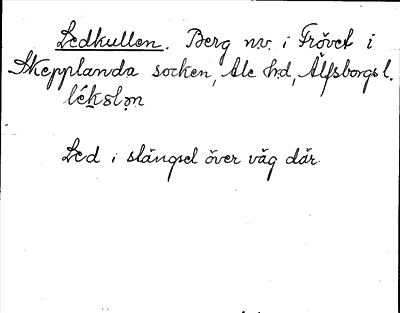 Ledkullen. Berg nv. i Frövet i
Skepplanda socken, Ale hd, Älfsborgs l.
Led i slängsel över väg där